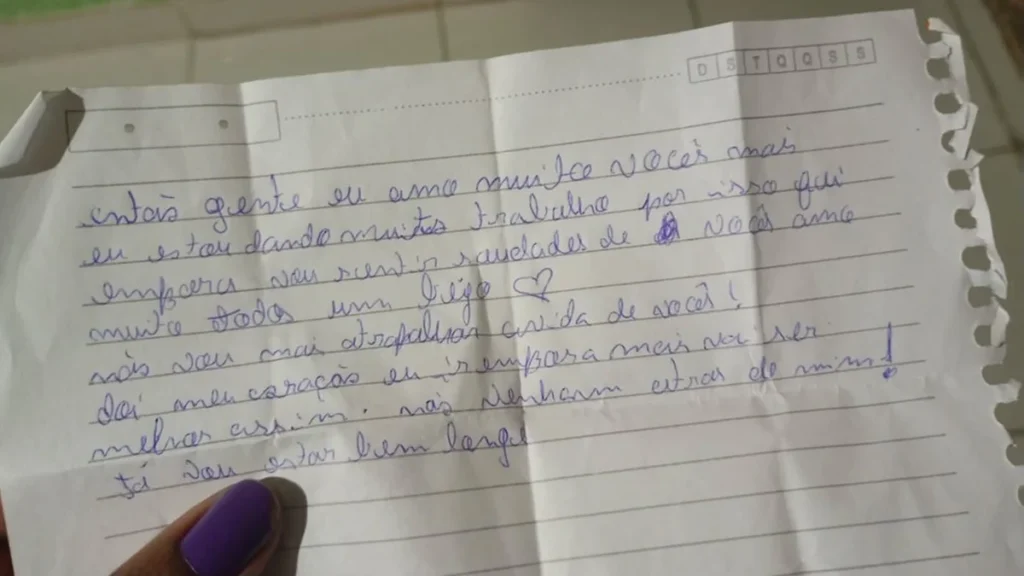 D S T Q Q S S
entâo gente eu amo muito vocês mais
eu estou dando muitos trabalho por isso qui
empora vou sentir saudades de vocês amo
muito todos um beijo ♡
não vou mai atrapalhar a vida de vocês!
doí meu coração eu ir empora mais vai ser
melhor assim. não venham atras de mim!
já vou estar bem longe